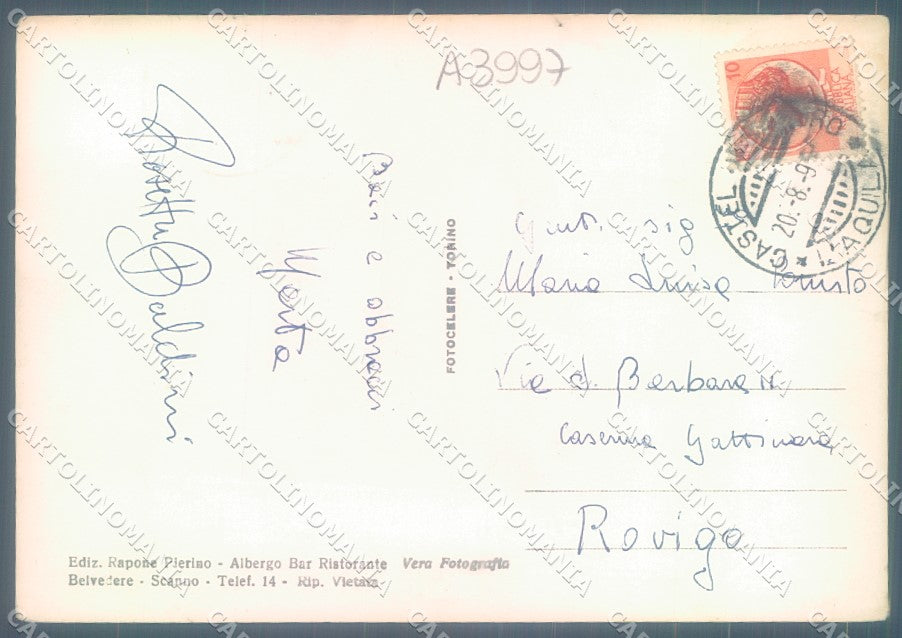 A3997
10
REPUBBLICA
ITALIANA
CASTEL
L'AQUILA
20.-8.-9
Baci e abbracci
Marta
Rosetta Baldini
FOTOCELERE - TORINO
Gent. sig
Maria Luisa
Via S. Barbara
Caserma Gattinara
Rovigo
Ediz. Rapone Pierino - Albergo Bar Ristorante Vera Fotografia
Belvedere - Scanno - Telef. 14 - Rip. Vietata
CARTOLINOMANIA